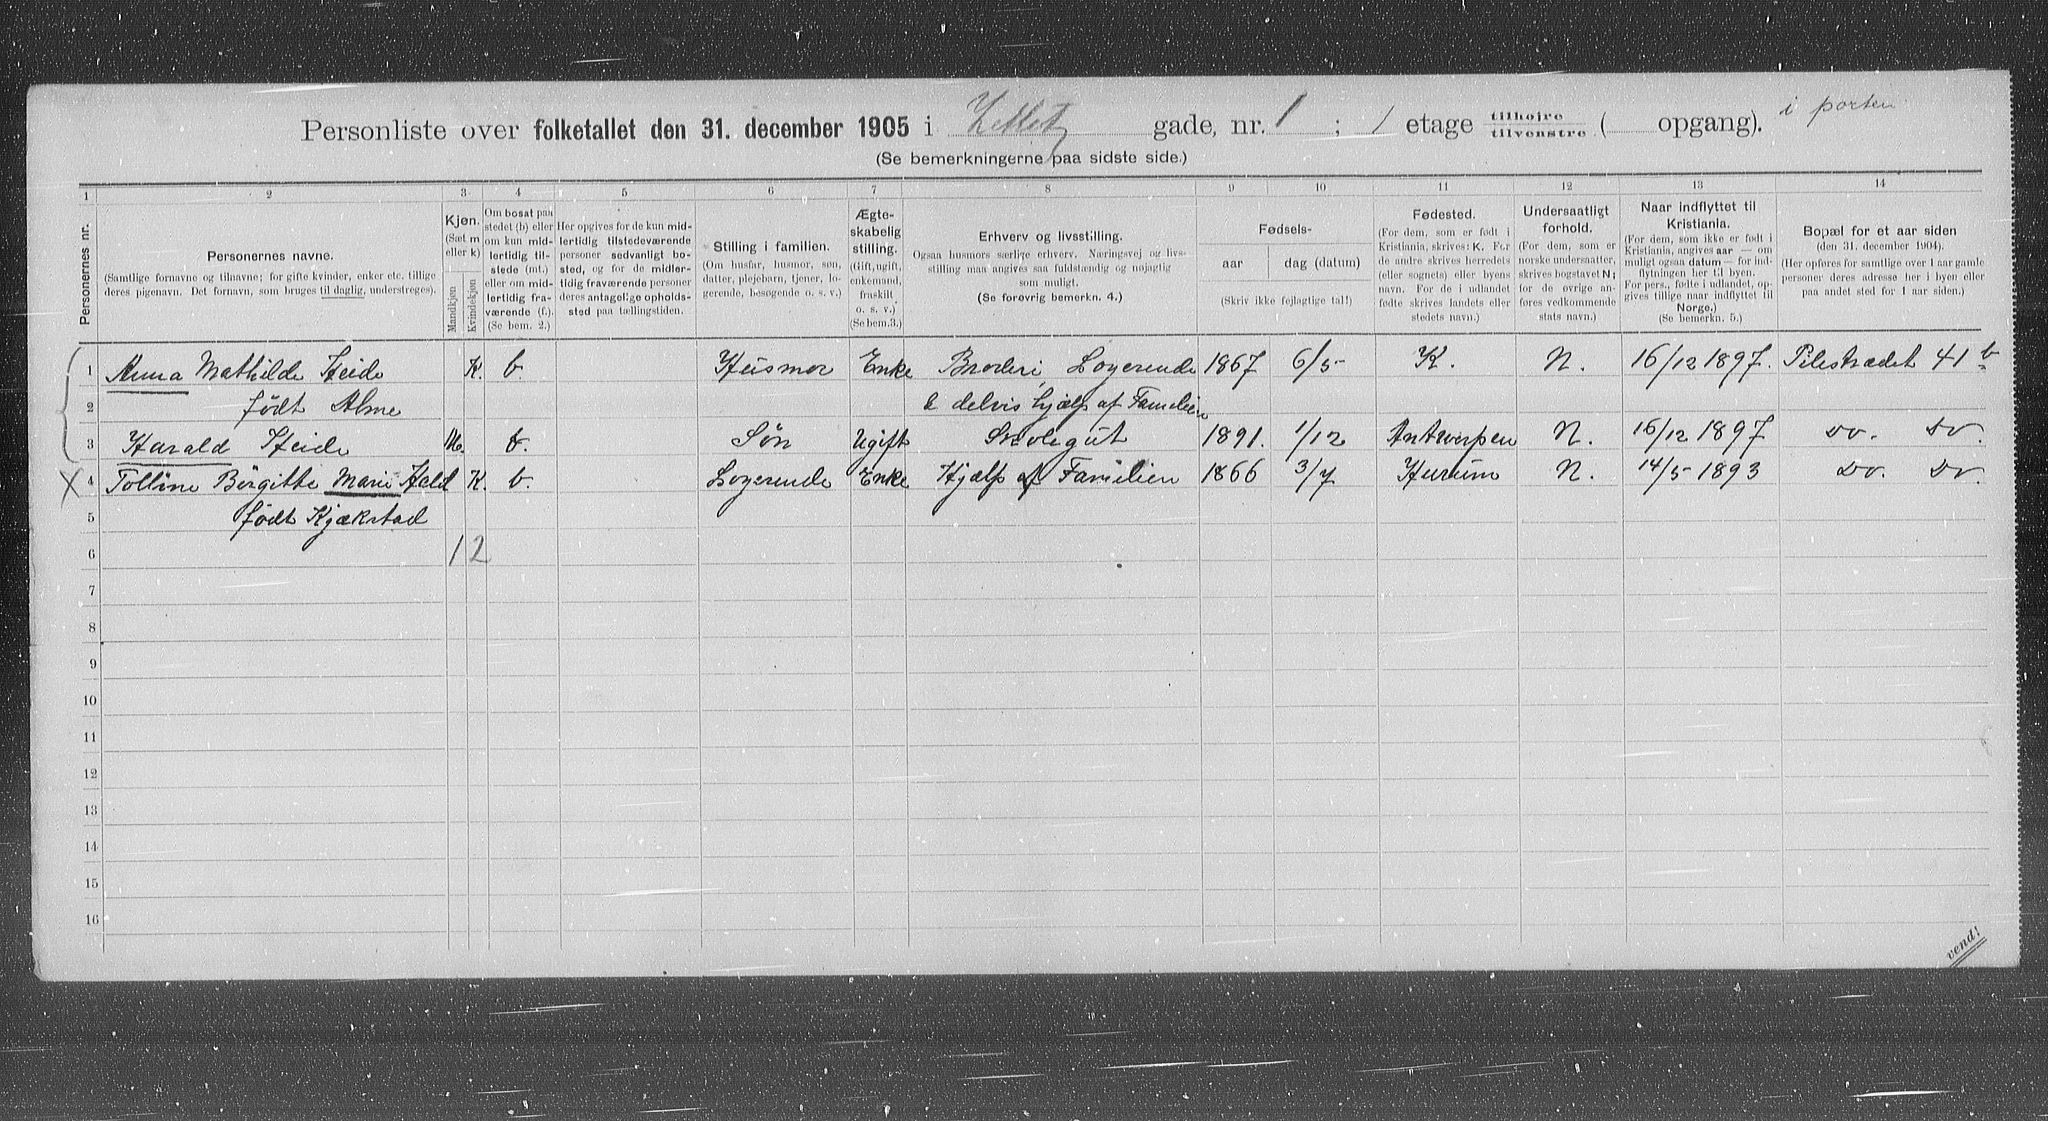 Personliste over folketallet den 31. december 1905 i Zetlitz gade, nr. 1 ; 1 etage tilhøjre tilvenstre ( opgang). i porten
(Se bemerkningerne paa sidste side.)
1 2 3 4 5 6 7 8 9 10 11 12 13 14
Personernes nr.
Personernes navne.
(Samtlige fornavne og tilnavne; for gifte kvinder, enker etc. tillige
deres pigenavn. Det fornavn, som bruges til daglig, understreges).
Kjøn.
(Sæt m
eller k)
Mandkjøn
Kvindekjøn
Om bosat paa
stedet (b) eller
om kun mid-
lertidig til-
stede (mt.)
eller om mid-
lertidig fra-
værende (f.).
(Se bem. 2.)
Her opgives for de kun mid-
lertidig tilstedeværende
personer sedvanligt bo-
sted, og for de midler-
tidig fraværende personer
deres antagelige opholds-
sted paa tællingstiden.
Stilling i familien.
(Om husfar, husmor, søn,
datter, plejebarn, tjener, lo-
gerende, besøgende o. s. v.)
Ægte-
skabelig
stilling.
(Gift, ugift,
enkemand,
fraskilt
o. s. v.)
(Se bem.3.)
Erhverv og livsstilling.
Ogsaa husmors særlige erhverv. Næringsvej og livs-
stilling maa angives saa fuldstændig og nøjagtig
som muligt.
(Se forøvrig bemerkn. 4.)
Fødsels-
aar
dag (datum)
(Skriv ikke fejlagtige tal!)
Fødested.
(For dem, som er født i
Kristiania, skrives: K. For
de andre skrives herredets
(eller sognets) eller byens
navn. For de i udlandet
fødte skrives landets eller
stedets navn.)
Undersaatligt
forhold.
(For dem, som er
norske undersaatter,
skrives bogstavet N;
for de øvrige an-
føres vedkommende
stats navn.)
Naar indflyttet til
Kristiania.
(For dem, som ikke er født i
Kristiania, angives aar — om
muligt ogsaa datum — for ind-
flytningen her til byen.
For pers., fødte i udlandet, op-
gives tillige naar indflyttet til
Norge.)
(Se bemerkn. 5.)
Bopæl for et aar siden
(den 31. december 1904).
(Her opføres for samtlige over 1 aar gamle
personer deres adresse her i byen eller
paa andet sted for 1 aar siden.)
1 Anna Mathilde Heide K. b. Husmor Enke Broderi, Logerende 1867 6/5 K. N. 16/12 1897. Pilestrædet 41 b
2 født Alme & delvis hjælp af Familien
3 Harald Heide M. b. Søn Ugift Skolegut 1891. 1/12 Antwerpen N. 16/12 1897 Do. Do.
X 4 Tolline Birgitte Marie Hald K. b. Logerende Enke Hjælp af Familien 1866 3/7 Hurum N. 14/5 1893 Do. Do.
5 født Kjækstad
6 1 2
7
8
9
10
11
12
13
14
15
16
vend!